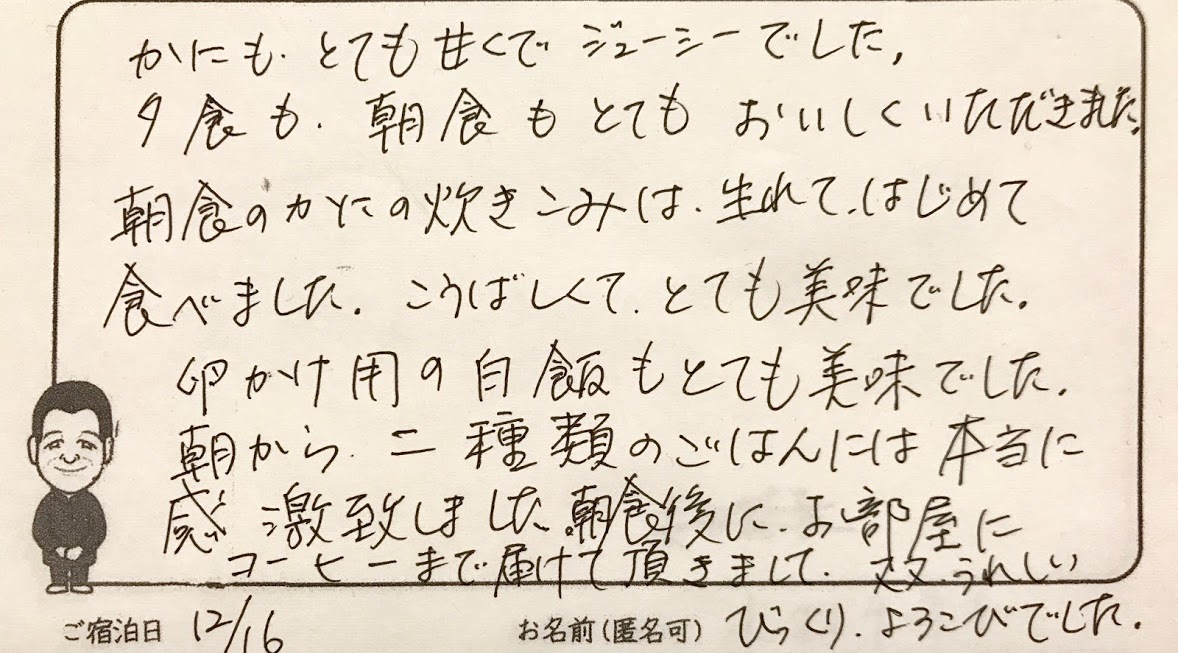 かにも、とても甘くてジューシーでした。
夕食も、朝食もとてもおいしくいただきました。
朝食のかにの炊きこみは、生れて、はじめて
食べました。こうばしくて、とても美味でした。
卵かけ用の白飯もとても美味でした。
朝から、二種類のごはんには本当に
感激致しました。朝食後に、お部屋に
コーヒーまで届けて頂きまして、又又、うれしい
びっくり、よろこびでした。
ご宿泊日 12/16 お名前(匿名可)